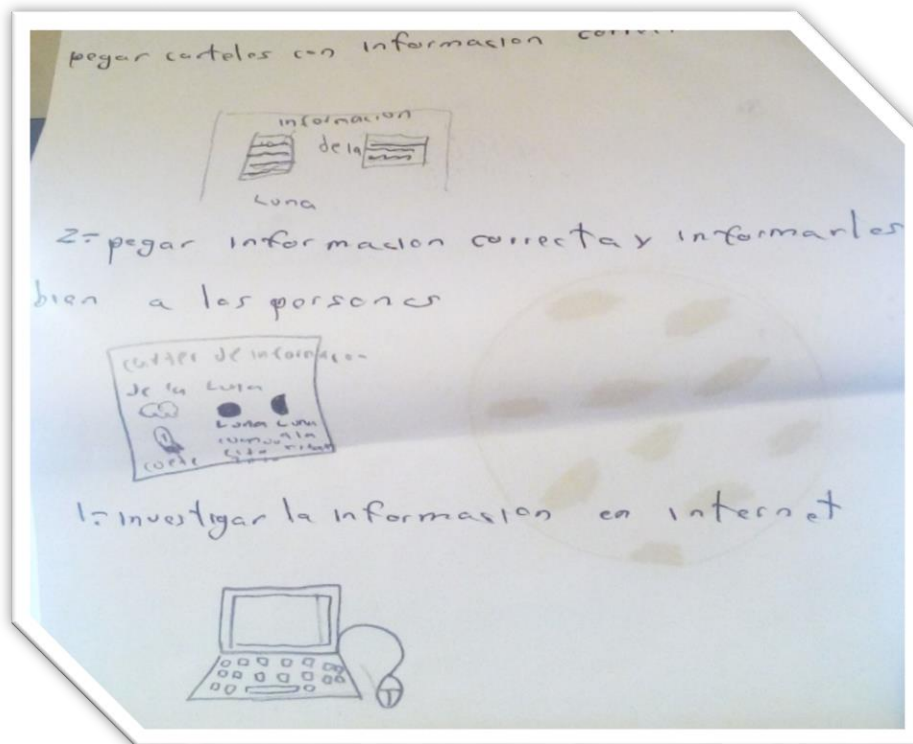 pegar carteles con informasion
informacion
de la
Luna
2= pegar informasion correcta y informarles
bien a las personas
de la Luna
Luna Luna
cuete
1= investigar la informasion en internet